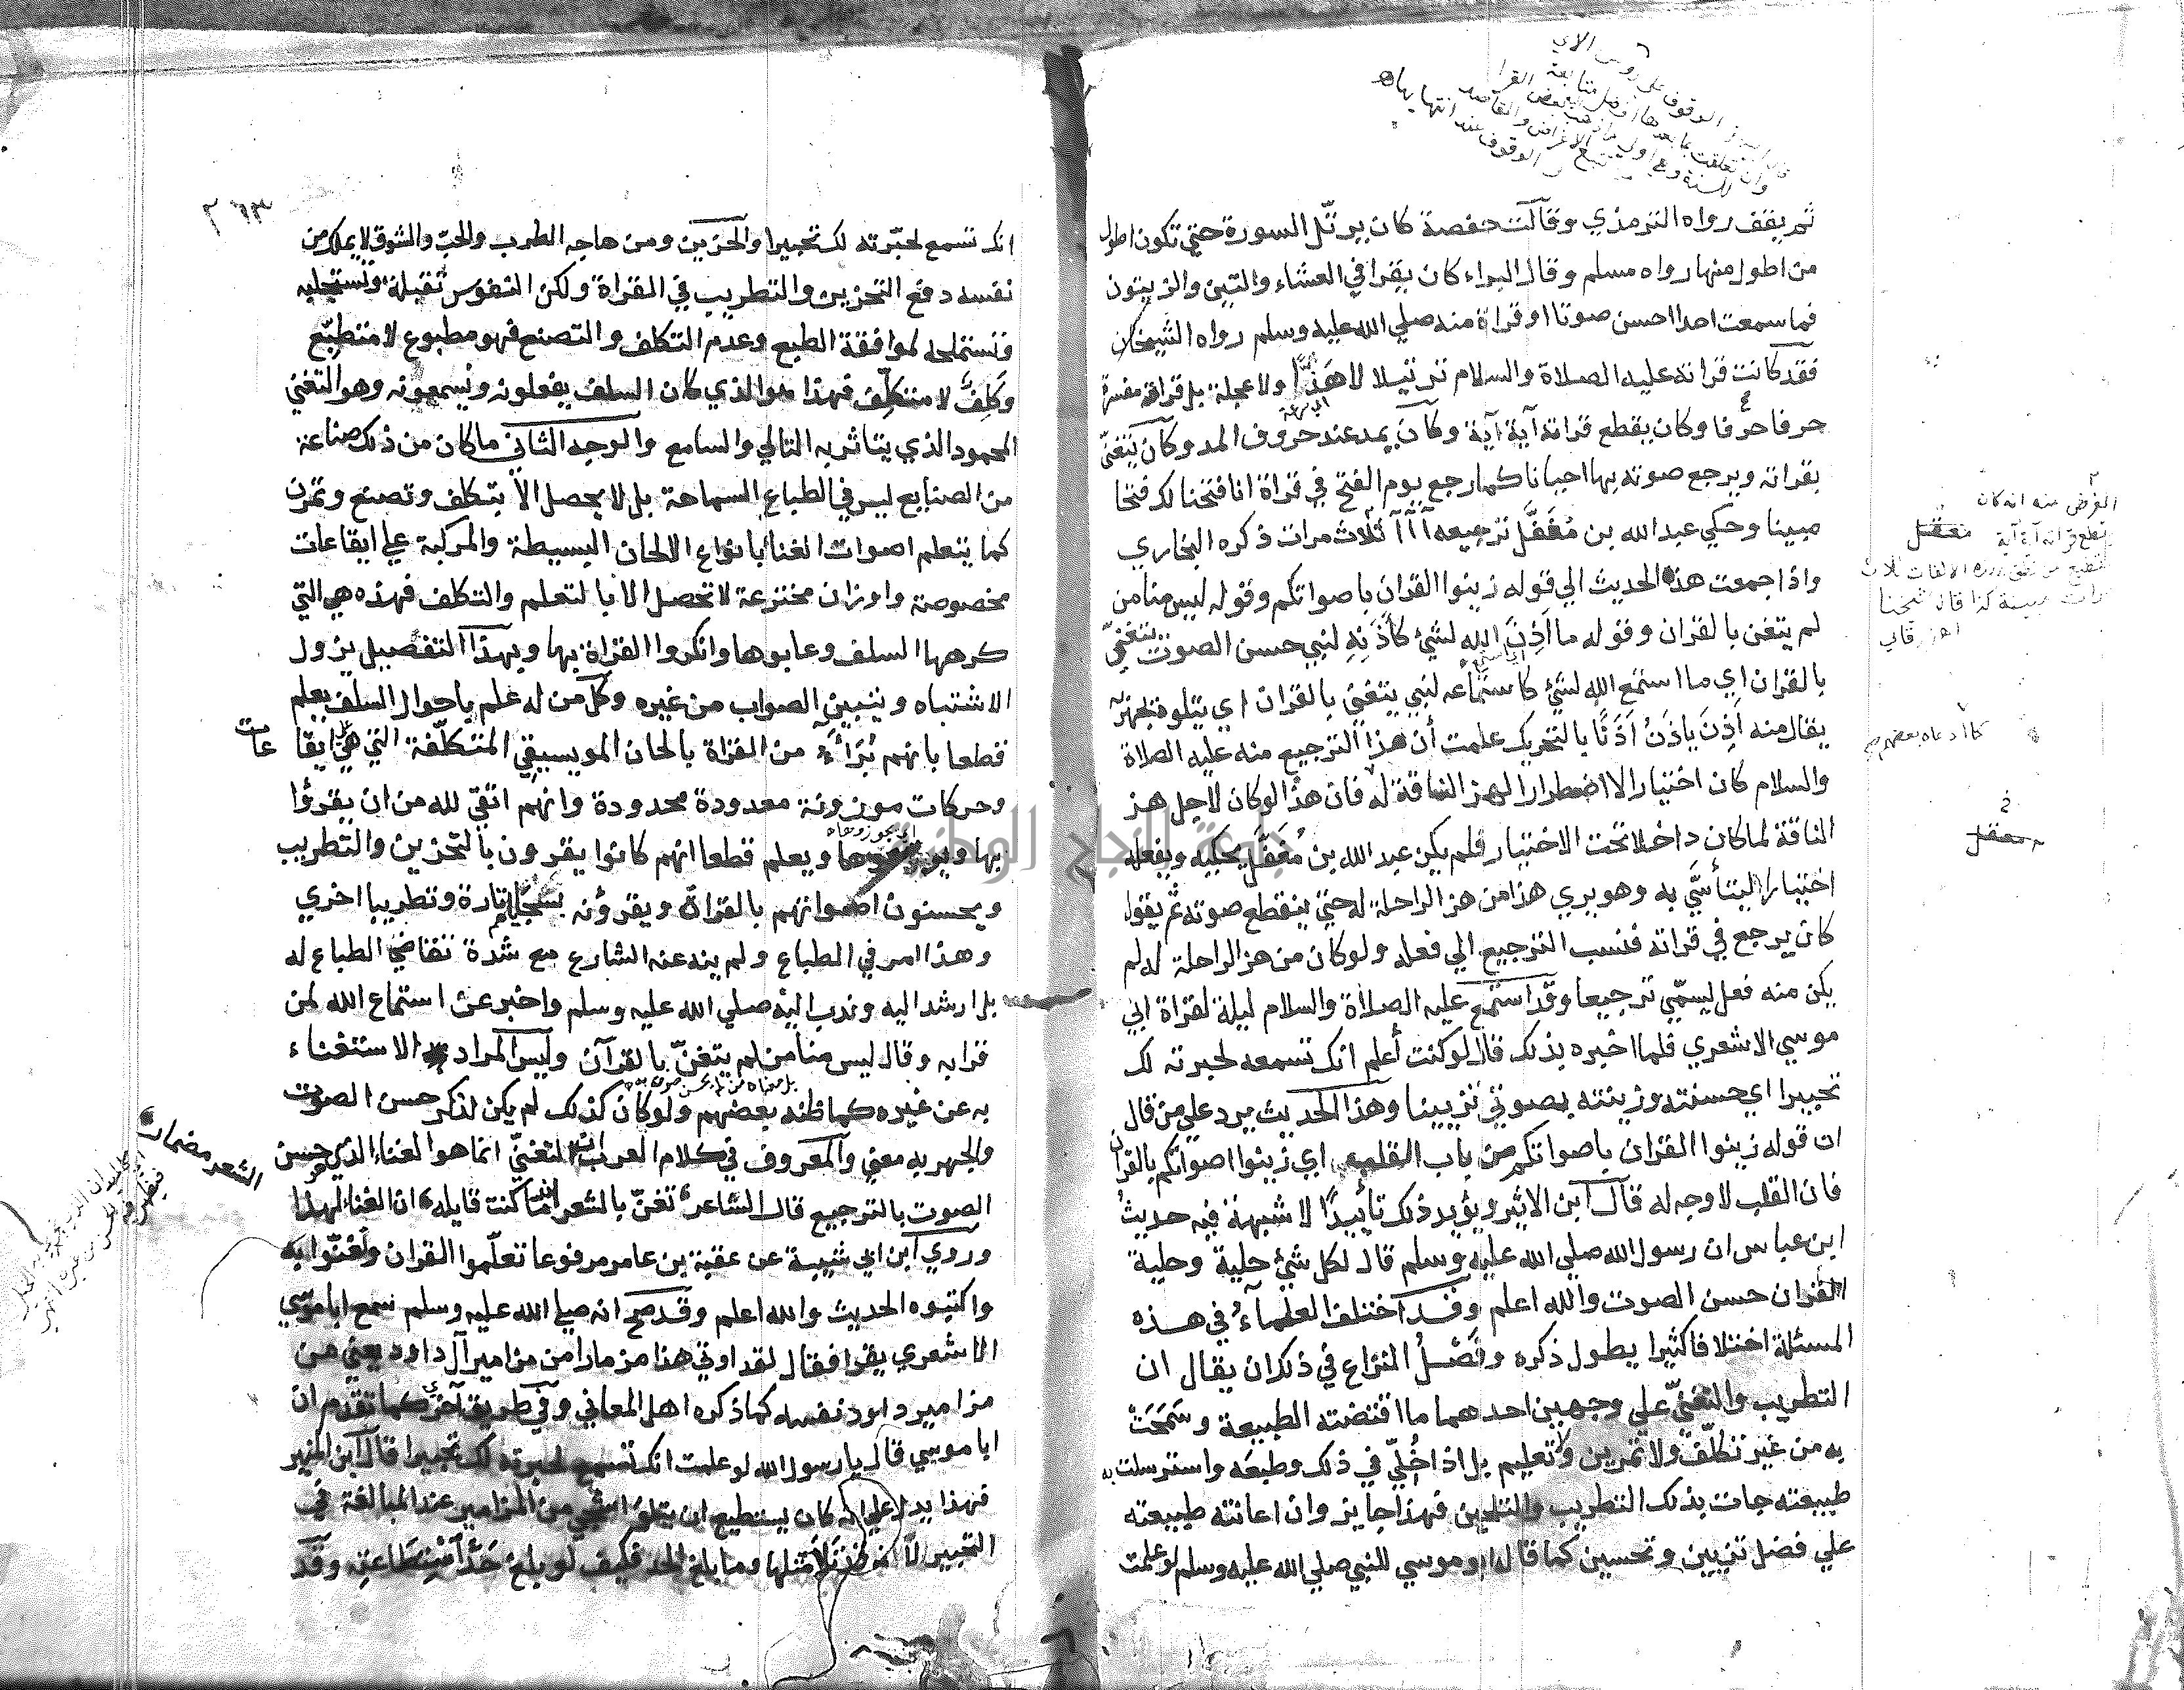 ثم يقف رواه الترمذي وقالت حفصة كان يرتّل السورة حتي تكون اطول
من اطول منها رواه مسلم وقال البراء كان يقرا في العشاء والتين والزيتون
فما سمعت احدا احسن صوتا او قراة منه صلي الله عليه وسلم رواه الشيخان
فقد كانت قراته عليه الصلاة والسلام ترتيلا لا هَذًّا ولا عجلة بل قراة مفسرة
حرفا حرفا وكان يقطع قراته آية آية وكان يمد عند حروف المد وكان يتغنّي
بقراته ويرجع صوته بها احيانا كما رجع يوم الفتح في قراة انا فتحنا لك فتحا
مبينا وحكي عبد الله بن مُغَفَّل ترجيعه آ آ آ ثلاث مرات ذكره البخاري
واذا جمعت هذا الحديث الي قوله زينوا القران باصواتكم وقوله ليس منا من
لم يتغن بالقران وقوله ما اَذِنَ الله لشئ كَاَذَنِهِ لنبي حسن الصوت يتغنّي
بالقران اي ما استمع الله لشئ كاستماعه لنبي يتغني بالقران اي يتلوه يجهر به
يقال منه اَذِنَ ياذَنُ اَذَنًا بالتحريك علمت أن هذا الترجيع منه عليه الصلاة
والسلام كان اختيارا لا اضطرارا لهز الناقة له فان هذا لو كان لاجل هز
الناقة لما كان داخلا تحت الاختيار فلم يكن عبد الله بن مُغَفَّل يحكيه ويفعله
اختيارا ليتأسَّي به وهو يري هذا من هز الراحلة له حتي ينقطع صوته ثم يقول
كان يرجع في قراته فنسب الترجيع الي فعله ولو كان من هز الراحلة له لم
يكن منه فعل يسمّي ترجيعا وقد استمع عليه الصلاة والسلام ليلة لقراة ابي
موسي الاشعري فلما اخبره بذلك قال لو كنت أعلم انك تسمعه لحبرته لك
تحبيرا اي حسنته وزينته بصوتي تزيينا وهذا الحديث يرد علي من قال
ان قوله زينوا القران باصواتكم من باب القلب اي زينوا اصواتكم بالقران
فان القلب لا وجه له قال ابن الاثير ويؤيد ذلك تأييدًا لا شبهة فيه حديثُ
ابن عباس ان رسول الله صلي الله عليه وسلم قال لكل شئ حلية وحلية
القران حسن الصوت والله اعلم وقد اختلف العلماءُ في هذه
المسئلة اختلافا كثيرا يطول ذكره وفَصْلُ النزاع في ذلك ان يقال ان
التطريب والتغنّي علي وجهين احدهما ما اقتضته الطبيعة وسَمَحَتْ
به من غير تكلّف ولا تمرين ولا تعليم بل اذا خُلِّي في ذلك وطبعَه واسترسلت به
طبيعته جات بذلك التطريب والتلحين فهذا جايز وان اعانته طبيعته
علي فضل تزيين وتحسين كما قال ابو موسي للنبي صلي الله عليه وسلم لو علمت
الغرض منه انه كان
يقطع قراته آية آية
كذا قال شيخنا
كما ادعاه بعضهم
٢٦٣
انك تسمع لحبّرته لك تحبيرا والحزين ومن هاجه الطرب والحبّ والشوق لا يملك من
نفسه دفع التحزين والتطريب في القراة ولكن النفوس تقبله وتستحليه
وتستملحه لموافقة الطبع وعدم التكلف والتصنع فهو مطبوع لا متطبّع
وكَلِفٌ لا متكلِّف فهذا هو الذي كان السلف يفعلونه ويسمعونه وهو التغني
المحمود الذي يتاثر به التالي والسامع والوجه الثاني ما كان من ذلك صناعة
من الصنايع ليس في الطباع السماحة بل لا يحصل الا بتكلف وتصنع وتمرن
كما يتعلم اصوات الغنا بانواع الالحان البسيطة والمركبة علي ايقاعات
مخصوصة واوزان مخترعة لا تحصل الا بالتعلم والتكلف فهذه هي التي
كرهها السلف وعابوها وانكروا القراة بها وبهذا التفصيل يزول
الاشتباه ويتبين الصواب من غيره وكل من له علم باحوال السلف يعلم
قطعا بانهم بُرَآءُ من القراة بالحان الموسيقي المتكلّفة التي هي ايقاعات
وحركات موزونة معدودة محدودة وانهم اتقي لله من ان يقرؤا
بها ويعلم قطعا انهم كانوا يقرون بالتحزين والتطريب
ويحسنون اصواتهم بالقران ويقرؤنه تارة وتطريبا اخري
وهذا امر في الطباع ولم ينه عنه الشارع مع شدة تقاضي الطباع له
بل ارشد اليه وندب اليه صلي الله عليه وسلم واخبر عن استماع الله لمن
قرا به وقال ليس منا من لم يتغنّ بالقرآن وليس المراد الاستغناء
به عن غيره كما ظنه بعضهم ولو كان كذلك لم يكن لذكر حسن الصوت
والجهر به معني والمعروف في كلام العرب ان التغنّي انما هو الغناء الذي هو حسن
الصوت بالترجيع قال الشاعر تغنّ بالشعر اما كنت قايله ان الغناء لهذا
الشعر مضمار
وروي ابن ابي شيبة عن عقبة بن عامر مرفوعا تعلّموا القران وتغنّوا به
واكتبوه الحديث والله اعلم وقد صح انه صلي الله عليه وسلم سمع ابا موسي
الاشعري يقرا فقال لقد اوتي هذا مزمارا من مزامير آل داود يعني من
مزامير داود نفسه كما ذكره اهل المعاني وفي طريق آخر كما تقدم ان
ابا موسي قال يا رسول الله لو علمت انك تسمع لحبرته لك تحبيرا قال ابن المنير
فهذا يدل علي انه كان يستطيع ان يتلو اشجي من المزامير عند المبالغة في
التحبير لانه قد تلا مثلها وما بلغ الحد فكيف لو بلغ حَدَّ اسْتِطَاعتِه وقد
جامعة النجاح الوطنية